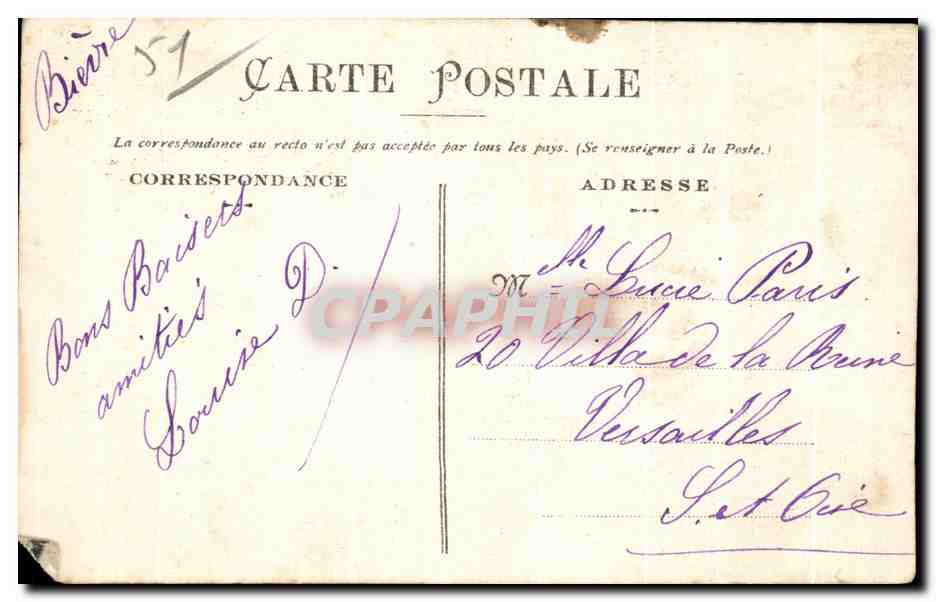 Bièvre
51
CARTE POSTALE
La correspondance au recto n'est pas acceptée par tous les pays. (Se renseigner à la Poste.)
CORRESPONDANCE
Bons Baisers
amitiés
Louise D.
ADRESSE
Mlle Lucie Paris
20 Villa de la Reine
Versailles
S. et Oise
CPAPHIL